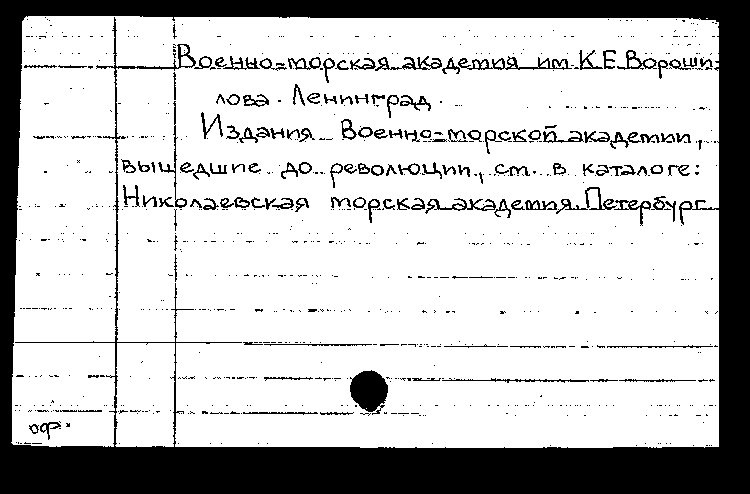 Военно-морская академия им. К.Е. Вороши-
лова. Ленинград.
Издания Военно-морской академии,
вышедшие до революции, см. в каталоге:
Николаевская морская академия. Петербург
оф.